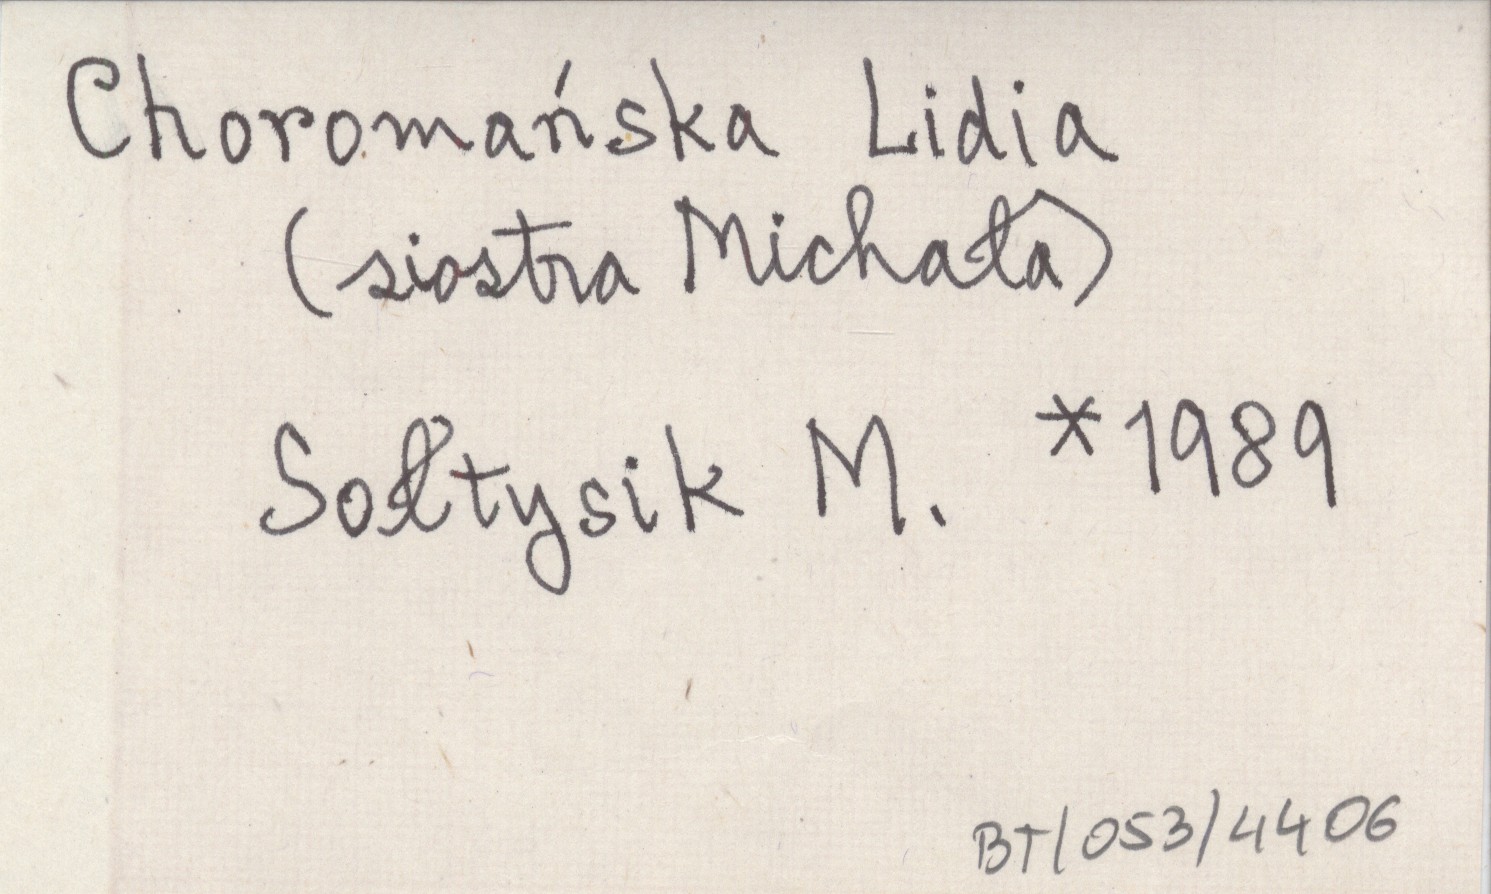 Choromańska Lidia
(siostra Michała)
Sołtysik M. *1989
BT/053/4406